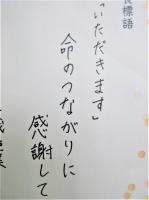 標語
「いただきます」
命のつながりに
感謝して